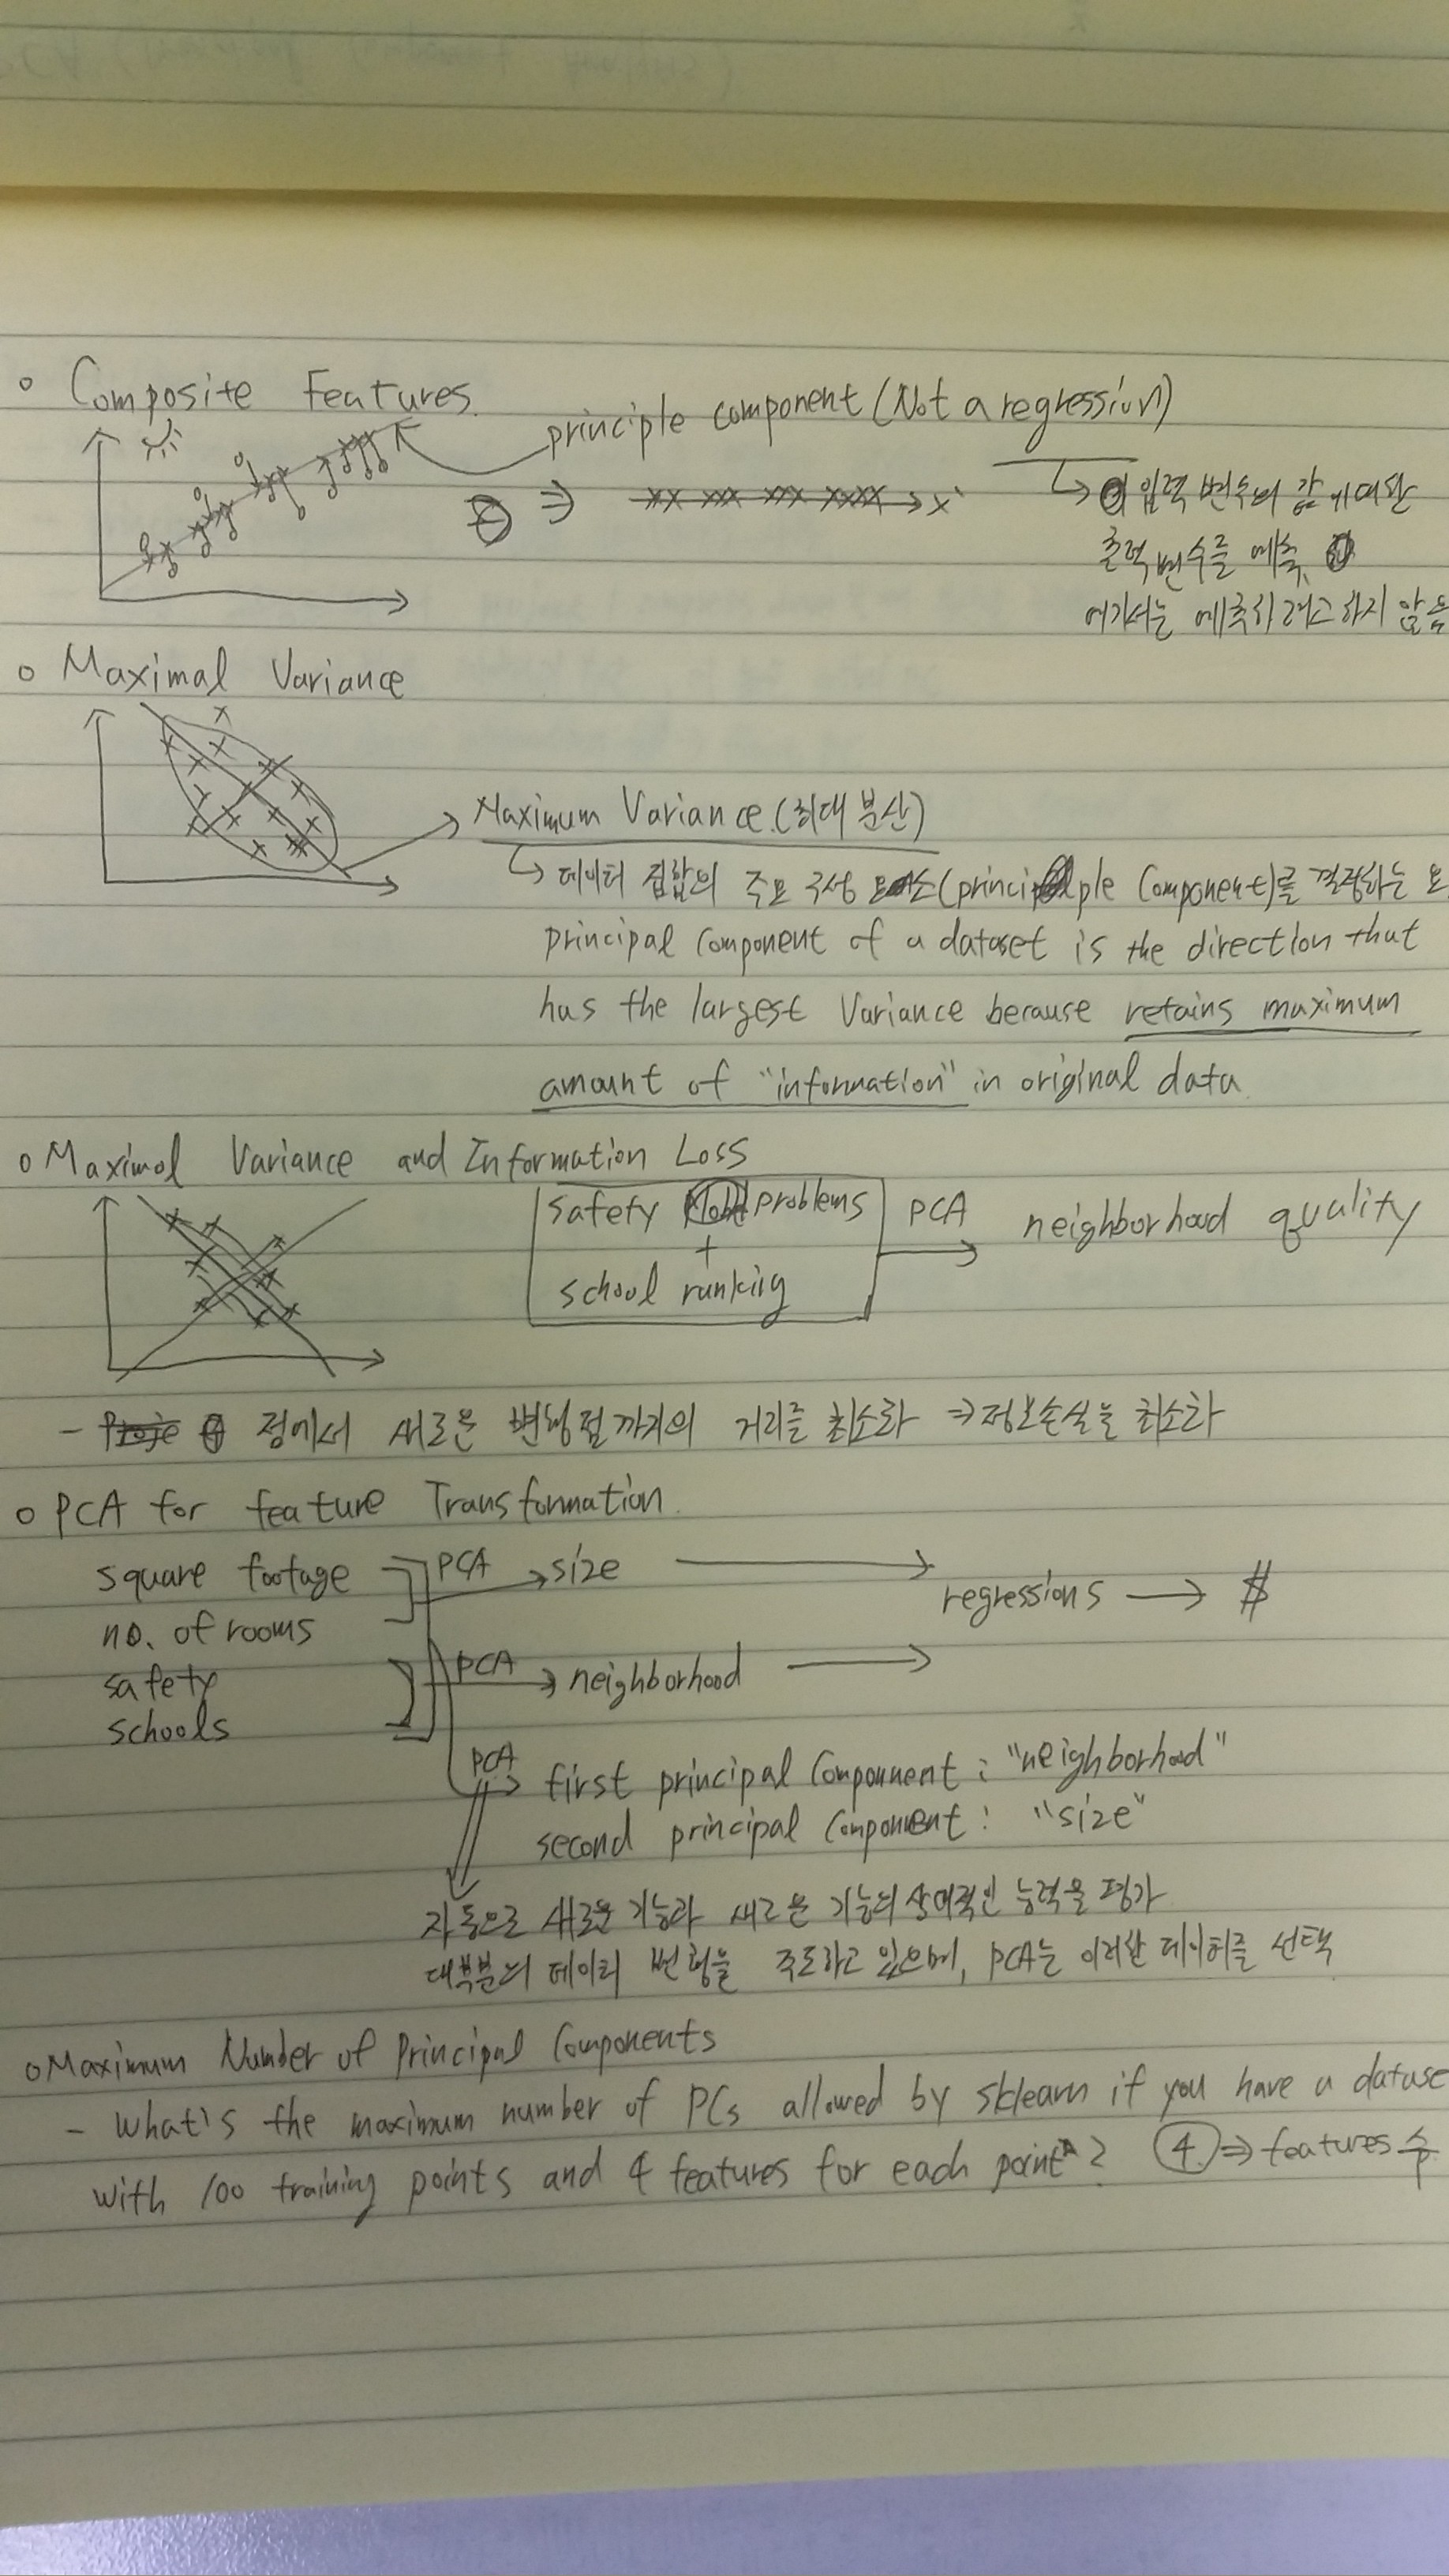 o Composite Features.
principle component (Not a regression)
⇒ x'
↳ 입력 변수의 값에 대한
출력 변수를 예측,
여기서는 예측하려고 하지 않음
o Maximal Variance
Maximum Variance.(최대 분산)
↳ 데이터 집합의 주요 구성 요소(principle Component)를 결정하는 요
principal component of a dataset is the direction that
has the largest Variance because retains maximum
amount of "information" in original data.
o Maximal Variance and Information Loss
safety problems
+
school ranking
PCA
neighborhood quality
- 점에서 새로운 변형점까지의 거리를 최소화 ⇒ 정보손실을 최소화
o PCA for feature Transformation.
square footage
no. of rooms
safety
schools
PCA → size
regressions → $
PCA → neighborhood
PCA
first principal Component : "neighborhood"
second principal Component : "size"
자동으로 새로운 기능과 새로운 기능의 상대적인 능력을 평가
대부분의 데이터 변형을 주도하고 있으며, PCA는 이러한 데이터를 선택
o Maximum Number of Principal Components
- What's the maximum number of PCs allowed by sklearn if you have a datase
with 100 training points and 4 features for each point? 4 ⇒ features 수